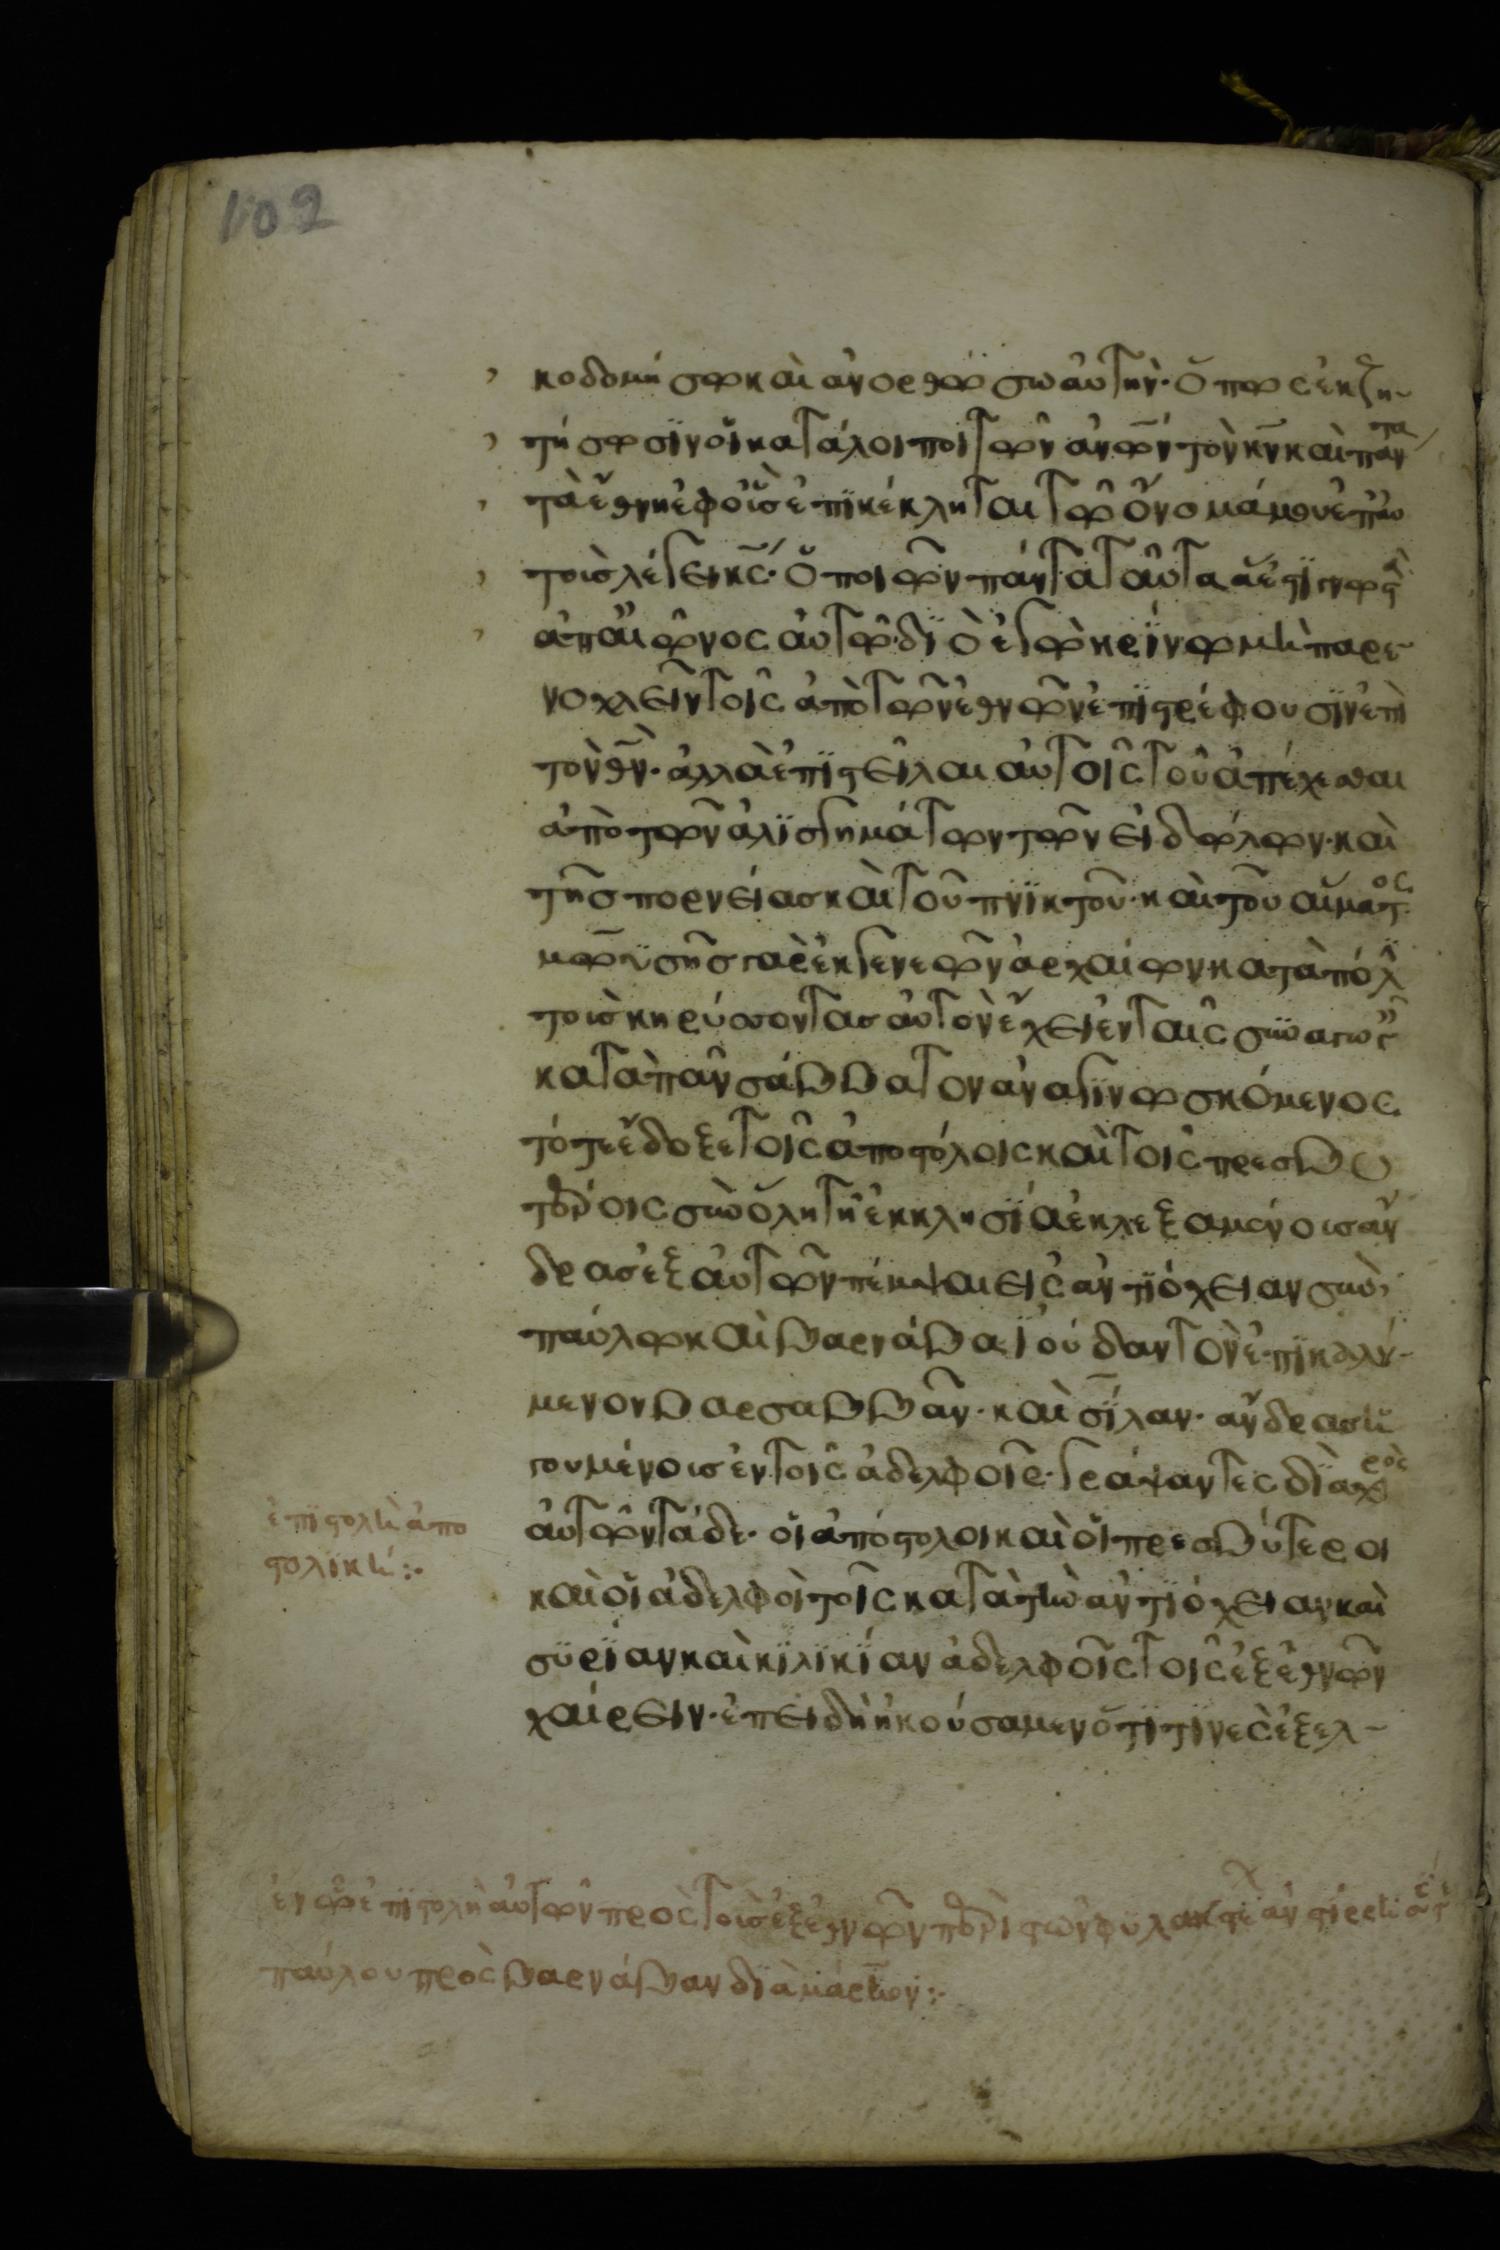 102
κοδομήσω καὶ ἀνορθώσω αὐτήν· ὅπως ἐκζη
τήσωσϊν οἱ κατάλοιποι τῶν ἀν̅ω̅ν τὸν κ̅ν̅ καὶ πάν
τα τὰ ἔθνη ἐφ οἷς ἐπϊκέκληται τὸ ὄνομά μου ἐπ αυ
τοὺς λέγει κ̅ς̅· ὁ ποιῶν πάντα ταῦτα ἅ ἐστϊ γνωστὰ
ἀπ αἰῶνος αὐτῶ· δϊὸ ἐγὼ κρΐνω μὴ παρε
νοχλεῖν τοῖς ἀπὸ τῶν ἐθνῶν ἐπϊστρέφουσϊν ἐπὶ
τὸν θ̅ν̅· ἀλλὰ ἐπϊστεῖλαι αὐτοῖς τοῦ ἀπέχεσθαι
ἀπὸ τῶν ἀλϊσγημάτων τῶν εἰδώλων· καὶ
τῆς πορνείας καὶ τοῦ πνϊκτοῦ· καὶ τοῦ αἵματος
μωϋσῆς γὰρ ἐκ γενεῶν ἀρχαίων κατὰ πόλ
τοὺς κηρύσσοντας αὐτὸν ἔχει ἐν ταῖς συναγω
κατὰ πᾶν σάββατον ἀναγϊνωσκόμενος
τότε ἔδοξε τοῖς ἀποστόλοις καὶ τοῖς πρεσβυ
τέροις σὺν ὅλη τῆ ἐκκλησΐα ἐκλεξαμένους ἄν
δρας ἐξ αὐτῶν πέμψαι εἰς ἀντϊόχειαν σὺν
παύλω καὶ βαρνάβα ϊούδαν τὸν ἐπϊκαλού
μενον βαρσαββᾶν· καὶ σΐλαν· ἄνδρας ἡ
γουμένους ἐν τοῖς ἀδελφοῖς· γράψαντες δϊὰ χειρὸς
αὐτῶν τάδε· οἱ ἀπόστολοι καὶ οἱ πρεσβύτεροι
καὶ οἱ ἀδελφοὶ τοῖς κατὰ τὴν ἀντϊόχειαν καὶ
συρΐαν καὶ κϊλϊκΐαν ἀδελφοῖς τοῖς ἐξ ἐθνῶν
χαίρειν· ἐπειδὴ ἠκούσαμεν ὅτϊ τϊνὲς ἐξελ
ἐπϊστολὴ ἀπο
στολϊκή :·
ἐν ὧ ἐπϊστολὴ αὐτῶν πρὸς τοὺς ἐξ ἐθνῶν περὶ τῶν φυλακτέ ἀντΐρρη
παύλου πρὸς βαρνάβαν δϊὰ μάρκον :·